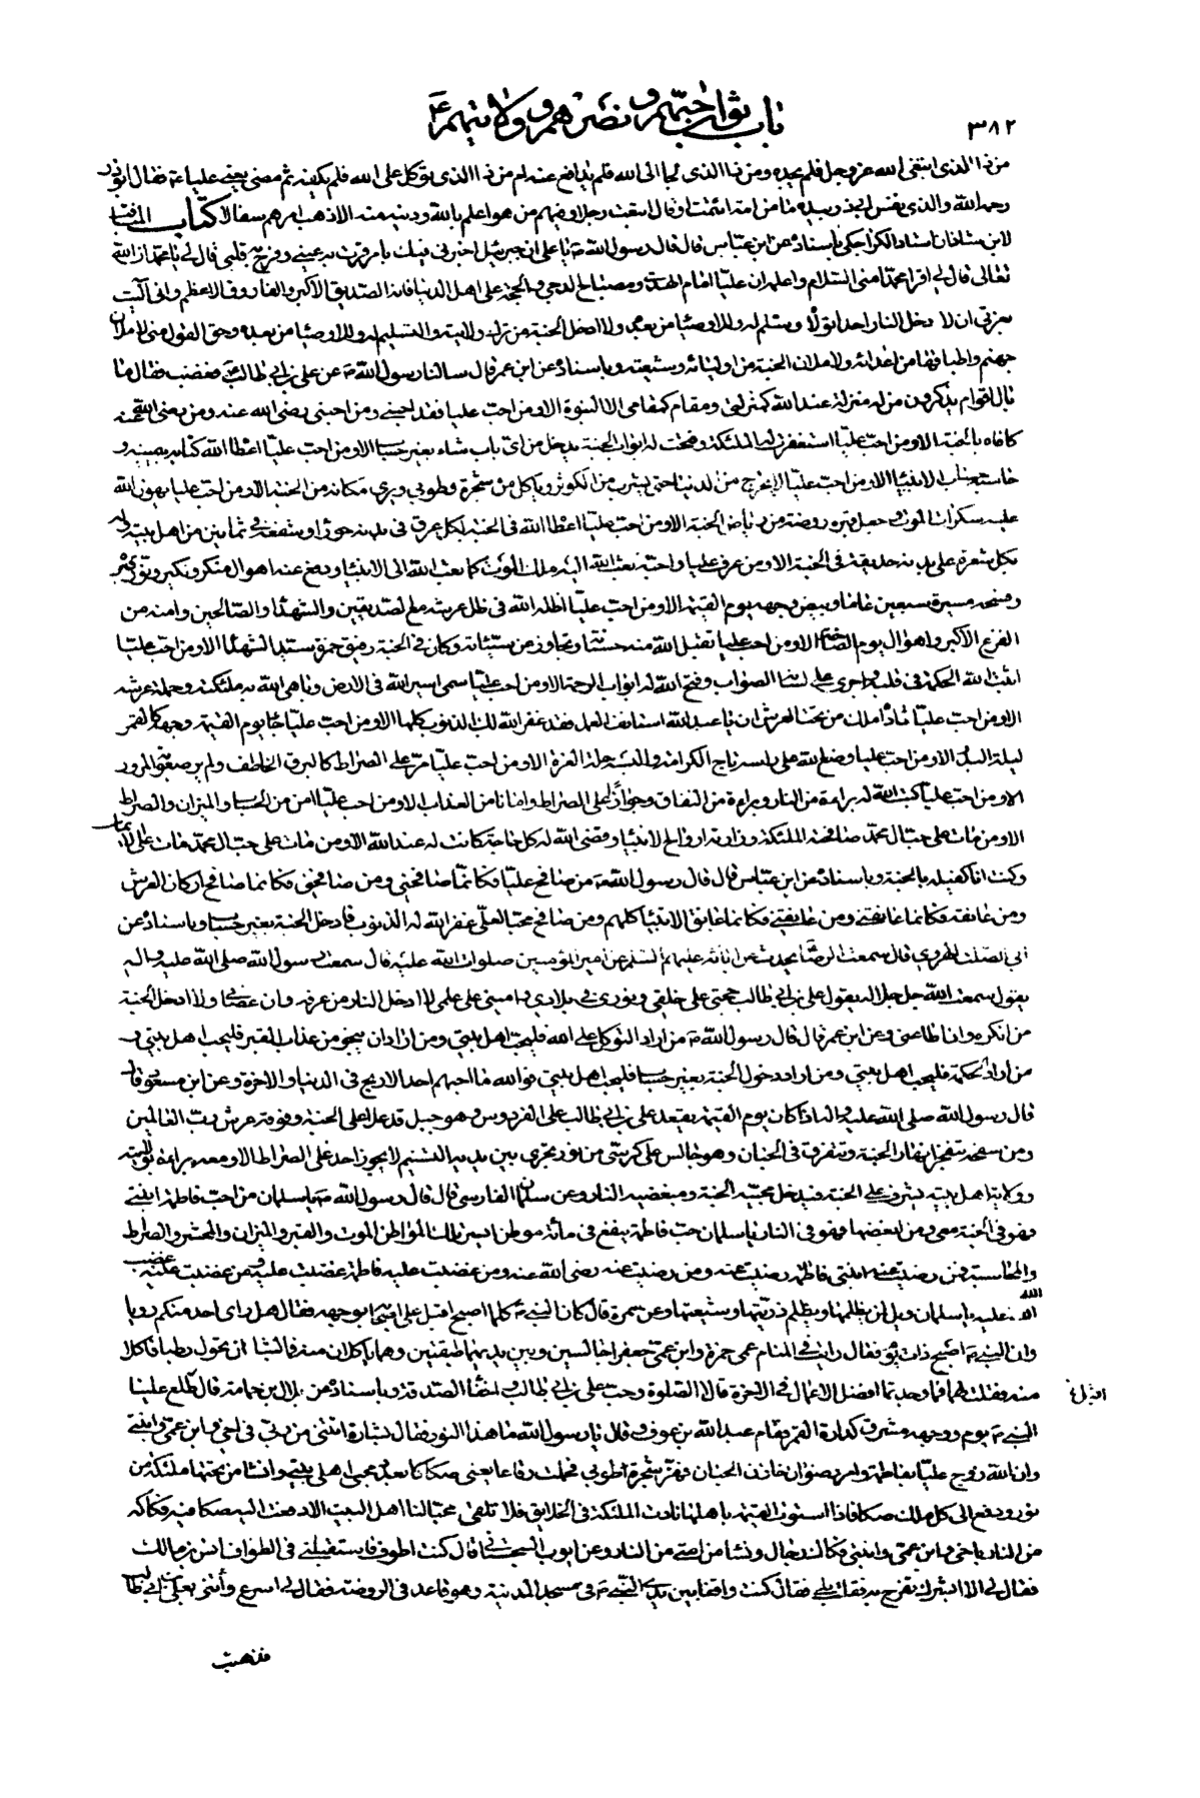 ٣٨٢
باب ثواب حبهم ونصرهم وولايتهم ع
من ذا الذى ابتغى الله عز وجل فلم يجده ومن ذا الذى لجأ الى الله فلم يدافع عنه ام من ذا الذى توكل على الله فلم يكفه ثم مضى يعنى عليا ع فقال ابوذر
رحمه الله والذى نفس ابى ذر بيده ما من امة ائتمت او قال اتبعت رجلا وفيهم من هو اعلم بالله ودينه منه الا ذهب امرهم سفالا كتاب المناقب
لابن شاذان استاد الكراجكى باسناده عن ابن عباس قال قال رسول الله ص يا على ان جبرئيل اخبرنى فيك بامر قرت به عينى وفرح به قلبى قال لى يا محمد ان الله
تعالى قال لى اقرأ محمدا منى السلام واعلمه ان عليا امام الهدى ومصباح الدجى والحجة على اهل الدنيا فانه الصديق الاكبر والفاروق الاعظم وانى آليت
بعزتى ان لا ادخل النار احدا تولاه وسلم له وللاوصياء من بعده ولا ادخل الجنة من ترك ولايته والتسليم له وللاوصياء من بعده وحق القول منى لاملان
جهنم واطباقها من اعدائه ولاملان الجنة من اوليائه وشيعته وباسناده عن ابن عمر قال سالنا رسول الله ص عن على بن ابى طالب ع فغضب فقال ما
بال اقوام يذكرون من له منزلة عند الله كمنزلتى ومقام كمقامى الا النبوة الا ومن احب عليا فقد احبنى ومن احبنى رضى الله عنه ومن رضى الله عنه
كافاه بالجنة الا ومن احب عليا استغفرت له الملئكة وفتحت له ابواب الجنة يدخل من اى باب شاء بغير حساب الا ومن احب عليا اعطاه الله كتابه بيمينه و
حاسبه حساب الانبياء الا ومن احب عليا لا يخرج من الدنيا حتى يشرب من الكوثر وياكل من شجرة طوبى ويرى مكانه من الجنة الا ومن احب عليا يهون الله
عليه سكرات الموت وجعل قبره روضة من رياض الجنة الا ومن احب عليا اعطاه الله فى الجنة بكل عرق فى بدنه حوراء وشفعه فى ثمانين من اهل بيته وله
بكل شعرة على بدنه حديقة فى الجنة الا ومن عرف عليا واحبه بعث الله اليه ملك الموت كما بعث الله الى الانبياء ودفع عنه اهوال منكر ونكير ونور قبره
وفسحه مسيرة سبعين عاما وبيض وجهه يوم القيمة الا ومن احب عليا اظله الله فى ظل عرشه مع الصديقين والشهداء والصالحين وامنه من
الفزع الاكبر واهوال يوم الصاخة الا ومن احب عليا تقبل الله منه حسناته وتجاوز عن سيئاته وكان فى الجنة رفيق حمزة سيد الشهداء الا ومن احب عليا
اثبت الله الحكمة فى قلبه واجرى على لسانه الصواب وفتح الله له ابواب الرحمة الا ومن احب عليا سمى اسير الله فى الارض وباهى الله به ملئكته وحملة عرشه
الا ومن احب عليا ناداه ملك من تحت العرش ان يا عبد الله استانف العمل فقد غفر الله لك الذنوب كلها الا ومن احب عليا جاء يوم القيمة ووجهه كالقمر
ليلة البدر الا ومن احب عليا وضع الله على راسه تاج الكرامة والبسه حلة العزة الا ومن احب عليا مر على الصراط كالبرق الخاطف ولم ير صعوبة المرور
الا ومن احب عليا كتب الله له براءة من النار وبراءة من النفاق وجوازا على الصراط وامانا من العذاب الا ومن احب عليا امن من الحساب والميزان والصراط
الا ومن مات على حب ال محمد صافحته الملئكة وزارته ارواح الانبياء وقضى الله له كل حاجة كانت له عند الله الا ومن مات على حب ال محمد مات على الايمان
وكنت انا كفيله بالجنة وباسناده عن ابن عباس قال قال رسول الله ص من صافح عليا فكانما صافحنى ومن صافحنى فكانما صافح اركان العرش
ومن عانقه فكانما عانقنى ومن عانقنى فكانما عانق الانبياء كلهم ومن صافح محبا لعلى غفر الله له الذنوب وادخل الجنة بغير حساب وباسناده عن
ابى الصلت الهروى قال سمعت الرضا يحدث عن ابائه عليهم السلم عن امير المؤمنين صلوات الله عليه قال سمعت رسول الله صلى الله عليه واله
يقول سمعت الله جل جلاله يقول على بن ابى طالب حجتى على خلقى ونورى فى بلادى وامينى على علمى لا ادخل النار من عرفه وان عصانى ولا ادخل الجنة
من انكره وان اطاعنى وعن ابن عمر قال قال رسول الله ص من اراد التوكل على الله فليحب اهل بيتى ومن اراد ان ينجو من عذاب القبر فليحب اهل بيتى و
من اراد الحكمة فليحب اهل بيتى ومن اراد دخول الجنة بغير حساب فليحب اهل بيتى فوالله ما احبهم احد الا ربح فى الدنيا والاخرة وعن ابن مسعود قال
قال رسول الله صلى الله عليه واله اذا كان يوم القيمة يقعد على بن ابى طالب على الفردوس وهو جبل قد علا على الجنة وفوقه عرش رب العالمين
ومن سفحه تتفجر انهار الجنة وتتفرق فى الجنان وهو جالس على كرسى من نور تجرى بين يديه التسنيم لا يجوز احد على الصراط الا ومعه براءة بولايته
وولاية اهل بيته يشرف على الجنة فيدخل محبيه الجنة ومبغضيه النار وعن سلمان الفارسى قال قال رسول الله ص يا سلمان من احب فاطمة ابنتى
فهو فى الجنة معى ومن ابغضها فهو فى النار يا سلمان حب فاطمة ينفع فى مائة موطن ايسر تلك المواطن الموت والقبر والميزان والمحشر والصراط
والمحاسبة فمن رضيت عنه ابنتى فاطمة رضيت عنه ومن رضيت عنه رضى الله عنه ومن غضبت عليه فاطمة غضبت عليه ومن غضبت عليه غضب
الله عليه يا سلمان ويل لمن يظلمها ويظلم ذريتها وشيعتها وعن سمرة قال كان النبى ص كلما اصبح اقبل على اصحابه بوجهه فقال هل راى احد منكم رويا
وان النبى ص اصبح ذات يوم فقال رايت فى المنام عمى حمزة وابن عمى جعفرا جالسين وبين يديهما طبق تين وهما ياكلان منه فما لبثا ان تحول رطبا فاكلا
منه فقلت لهما فما وجدتما افضل الاعمال فى الاخرة قالا الصلوة وحب على بن ابى طالب واخفاء الصدقة وباسناده عن بلال بن حمامة قال طلع علينا
النبى ص يوم ووجهه مشرق كدارة القمر فقام عبد الله بن عوف وقال يا رسول الله ما هذا النور فقال بشارة اتتنى من ربى فى اخى وابن عمى وابنتى
وان الله زوج عليا بفاطمة وامر رضوان خازن الجنان فهز شجرة طوبى فحملت رقاعا يعنى صكاكا بعدد محبى اهل بيتى وانشا من تحتها ملئكة من
نور ودفع الى كل ملك صكا فاذا استوت القيمة باهلها نادت الملئكة فى الخلايق فلا تلقى محبا لنا اهل البيت الا دفعت اليه صكا فيه فكاكه
من النار باخى وابن عمى وابنتى فكاك رجال ونساء من امتى من النار وعن ايوب السجستانى قال كنت اطوف فاستقبلنى فى الطواف انس بن مالك
فقال لى الا ابشرك تفرح به فقلت بلى فقال كنت واقفا بين يدى النبى ص فى مسجد المدينة وهو قاعد فى الروضة فقال لى اسرع وأتنى بعلى بن ابى طالب
فذهبت